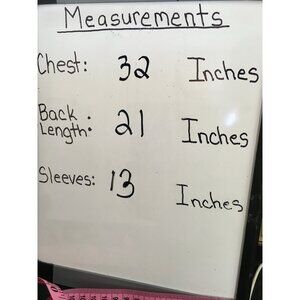 Measurements
Chest: 32 Inches
Back
Length: 21 Inches
Sleeves: 13 Inches